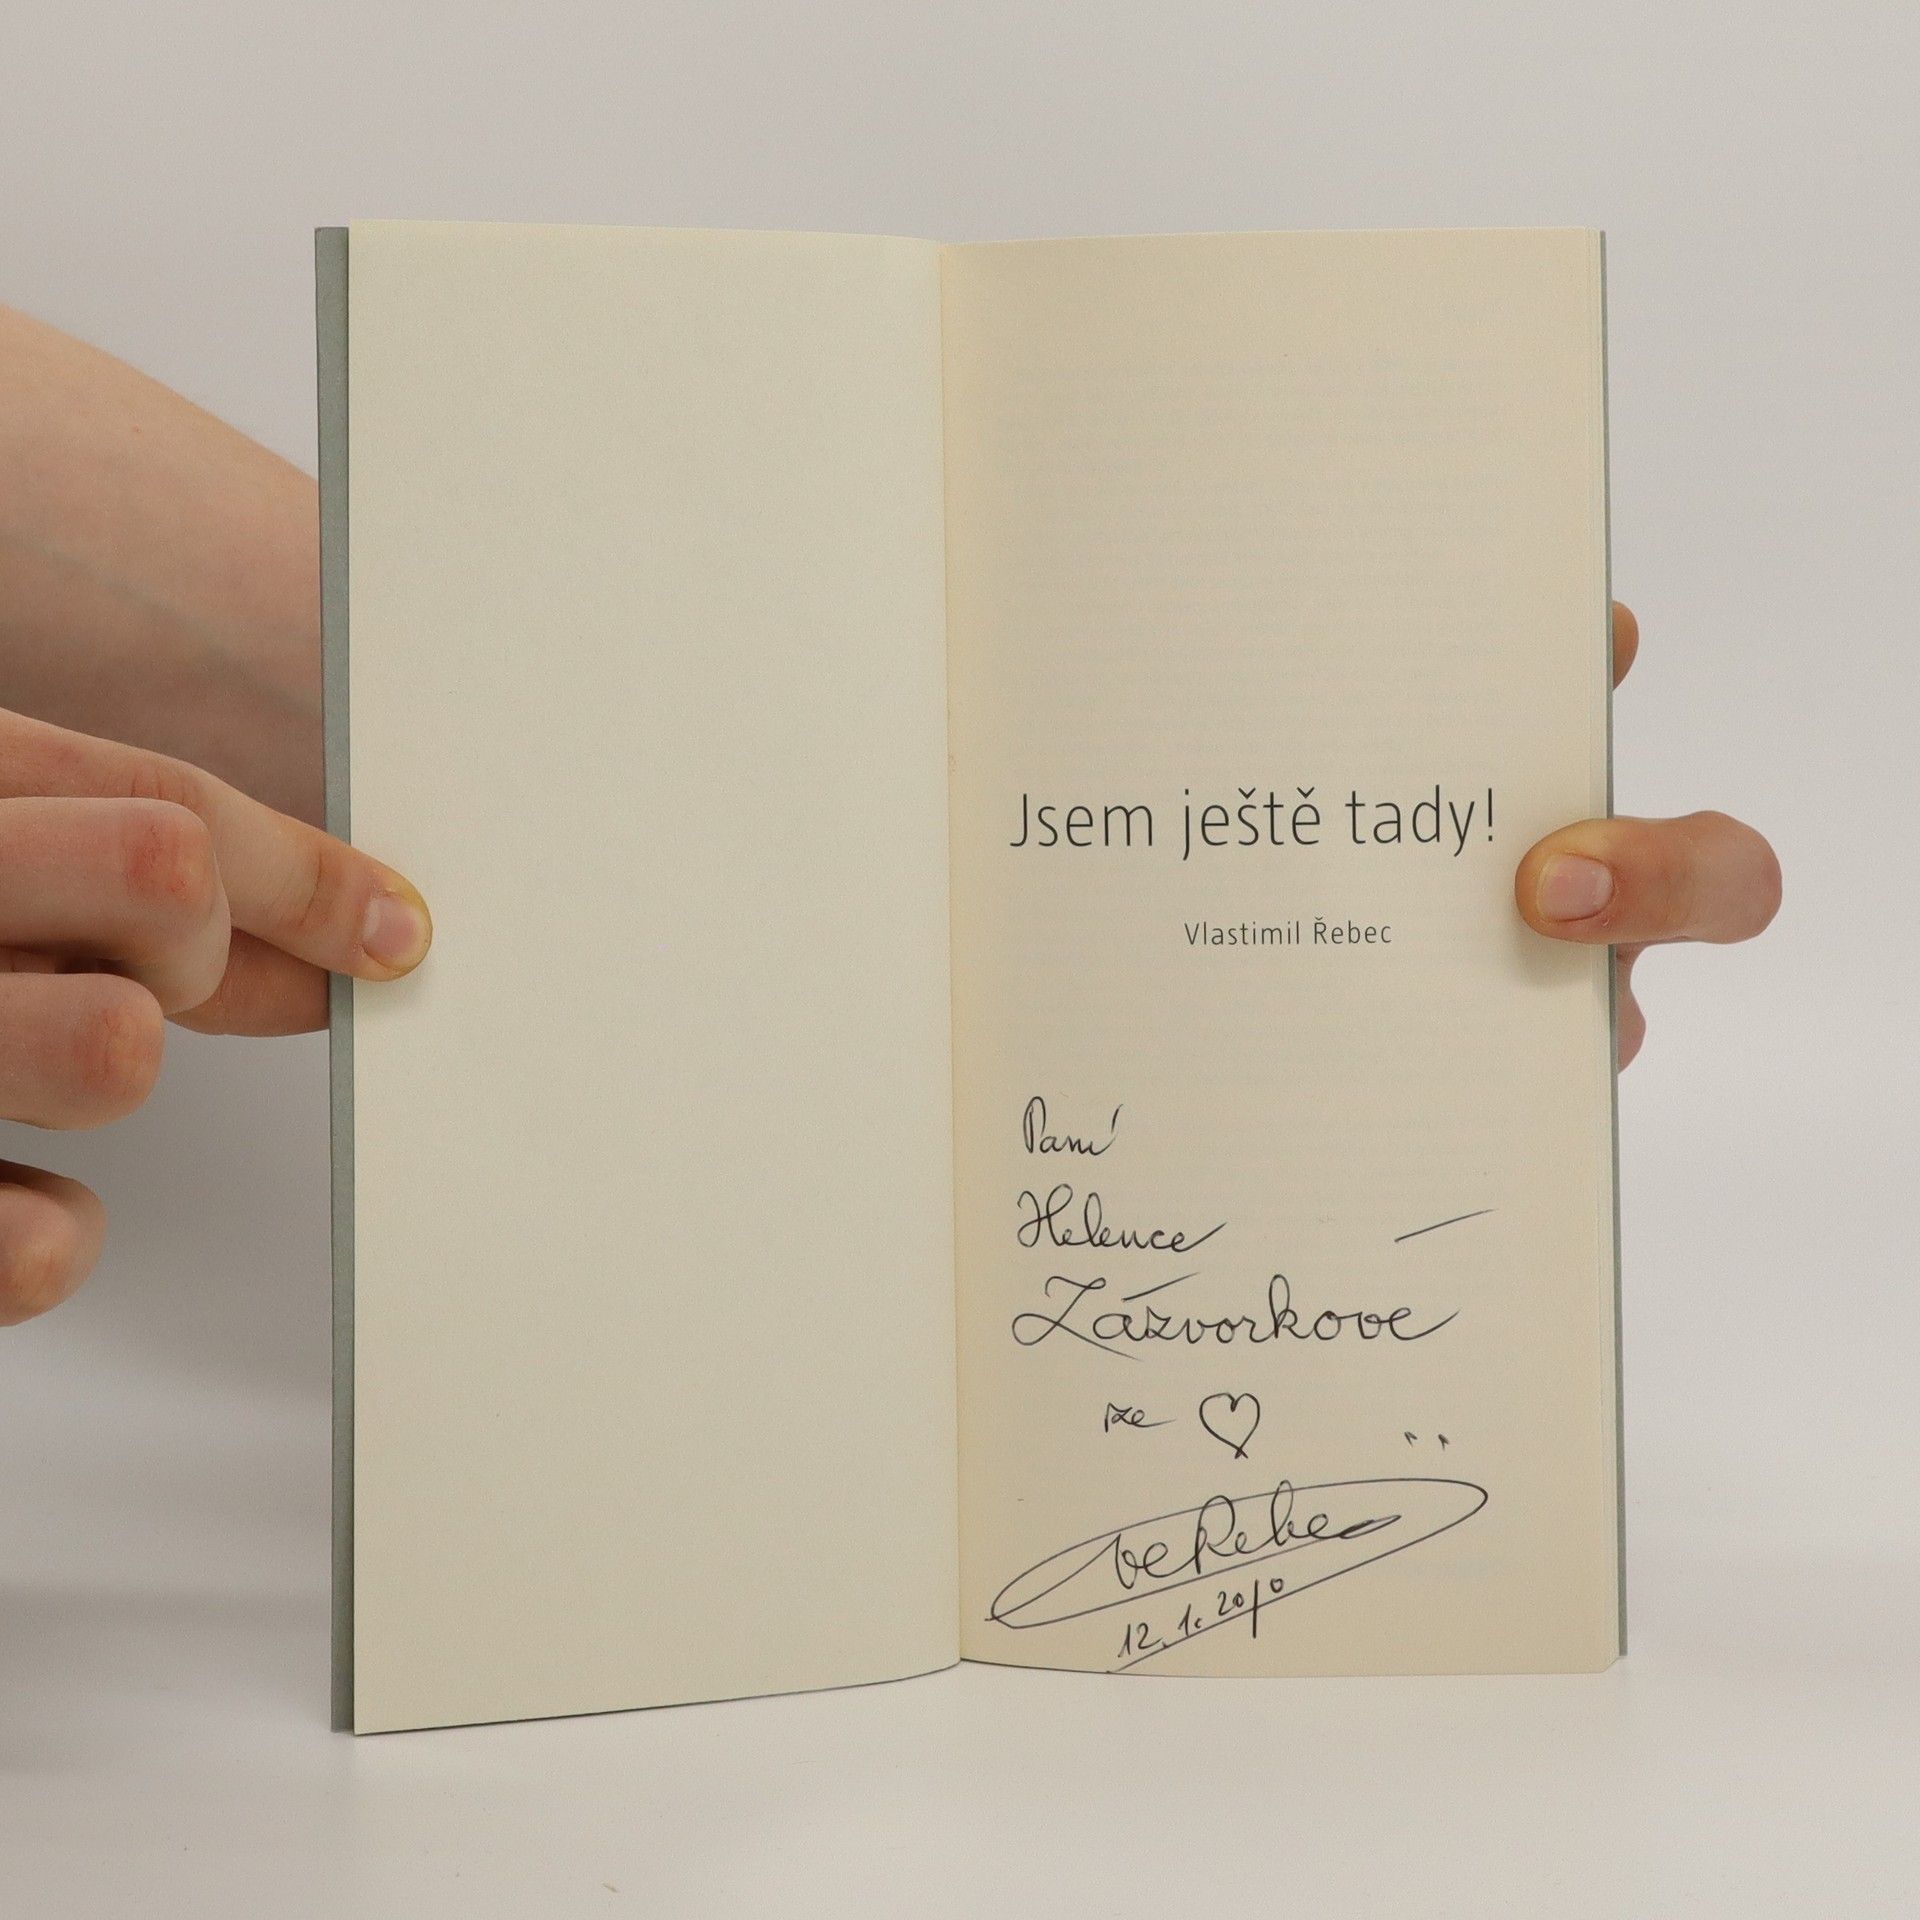 Jsem ještě tady!
Vlastimil Řebec
Paní
Helence
Zázvorkové
ze ♡
12.1.2010